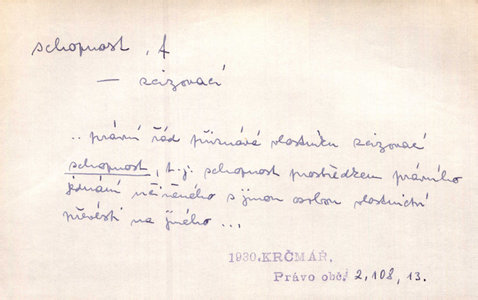 schopnost, f
— zcizovací
.. právní řád přiznává vlastníku zcizovací
schopnost, t.j. schopnost prostředkem právního
jednání učiněného s jinou osobou vlastnictví
převésti na jiného ...
1930.KRČMÁŘ.
Právo obč. 2, 108, 13.